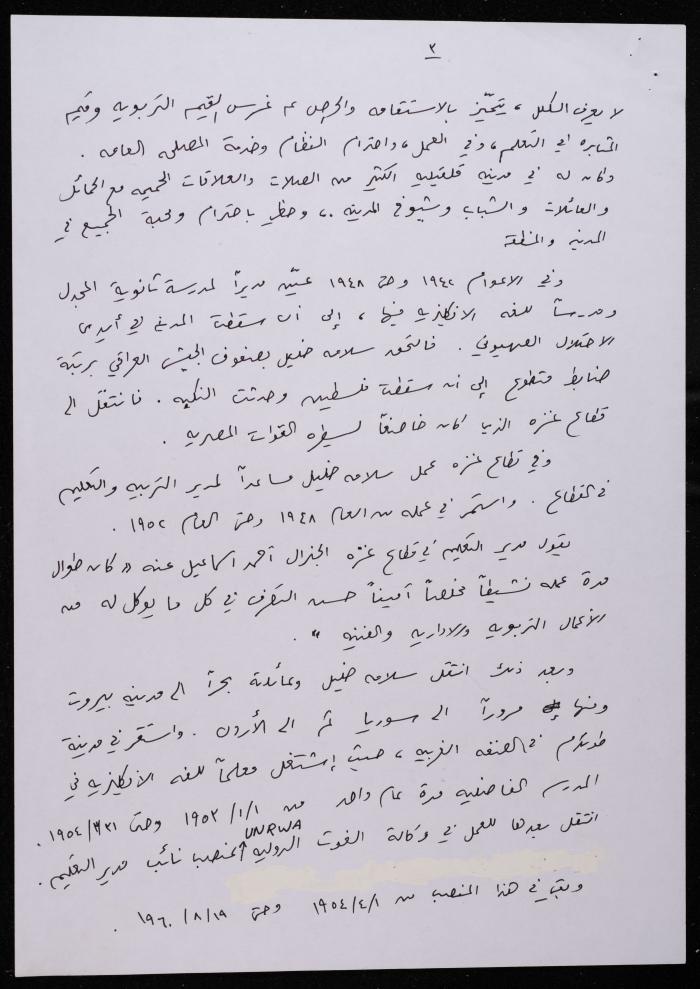 ٣
لا يعرف الكلل ، يتميّز بالاستقامه والحرص على غرس القيم التربويه وقيم
المثابره في التعلم ، وفي العمل ، واحترام النظام وخدمة المصلحه العامه .
وكان له في مدينة قلقيليه الكثير من الصلات والعلاقات الحميمه مع الحمائل
والعائلات والشباب وشيوخ المدينه . ، وحظي باحترام ومحبة الجميع في
المدينه والمنطقه
وفي الاعوام ١٩٤٢ وحتى ١٩٤٨ عيّن مديراً لمدرسة ثانوية المجدل
ومدرساً للغه الانكليزيه فيها ، إلى ان سقطت المدينه في أيدي
الاحتلال الصهيوني . فالتحق سلامه خليل بصفوف الجيش العراقي برتبة
ضابط متطوع إلى ان سقطت فلسطين وحدثت النكبه . فانتقل الى
قطاع غزه الذي كان خاضعاً لسيطره القوات المصريه .
وفي قطاع غزه عمل سلامه خليل مساعداً لمدير التربيه والتعليم
في القطاع . واستمر في عمله من العام ١٩٤٨ وحتى العام ١٩٥٢ .
يقول مدير التعليم في قطاع غزه الجنرال أحمد اسماعيل عنه " كان طوال
مدة عمله نشيطاً مخلصاً أميناً حسن التصرف في كل ما يوكل له من
الأعمال التربويه والاداريه والفنيه " .
وبعد ذلك انتقل سلامه خليل وعائلته بحراً الى مدينه بيروت
ومنها مروراً الى سوريا ثم الى الأردن . واستقر في مدينة
طولكرم في الضفه الغربيه ، حيث إشتغل معلماً للغه الانكليزيه في
المدرسه الفاضليه مدة عام واحد من ١/١/ ١٩٥٣ وحتى ٣١/٣/ ١٩٥٤ .
انتقل بعدها للعمل في وكالة الغوث الدوليه UNRWA لمنصب نائب مدير التعليم .
وبقي في هذا المنصب من ١/٤/ ١٩٥٤ وحتى ١٩/ ٨/ ١٩٦٠ .